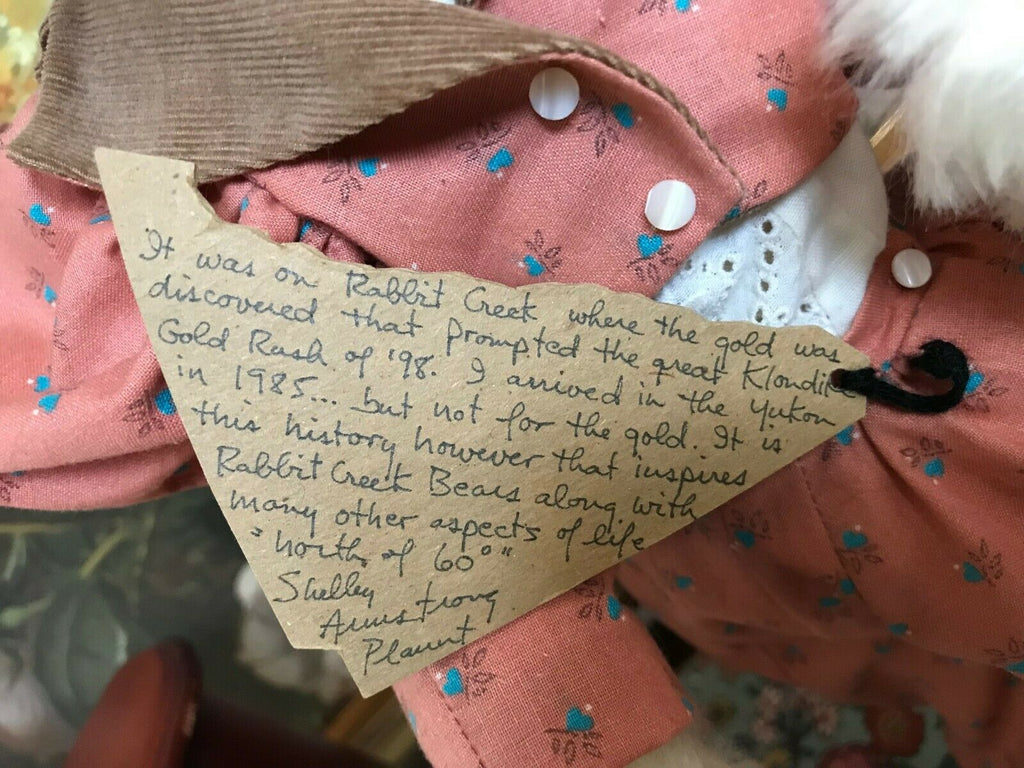 It was on Rabbit Creek where the gold was
discovered that prompted the great Klondike
Gold Rush of '98. I arrived in the Yukon
in 1985... but not for the gold. It is
this history however that inspires
Rabbit Creek Bears along with
many other aspects of life
"north of 60°"
Shelley
Armstrong
Plaunt